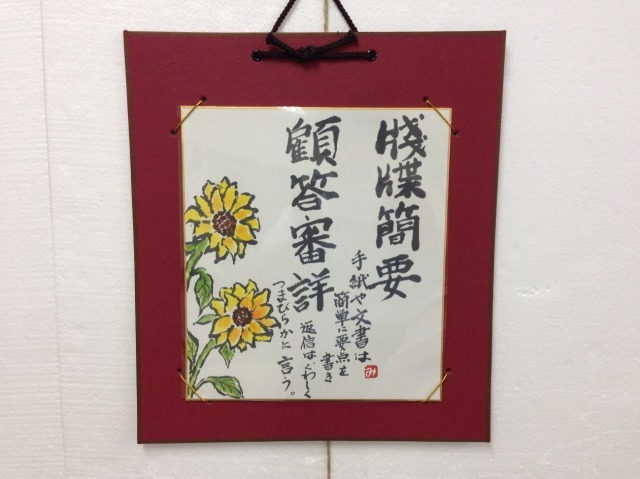 牋牒簡要
顧答審詳
手紙や文書は
簡単に要点を
書き
返信はくわしく
つまびらかに言う。
み